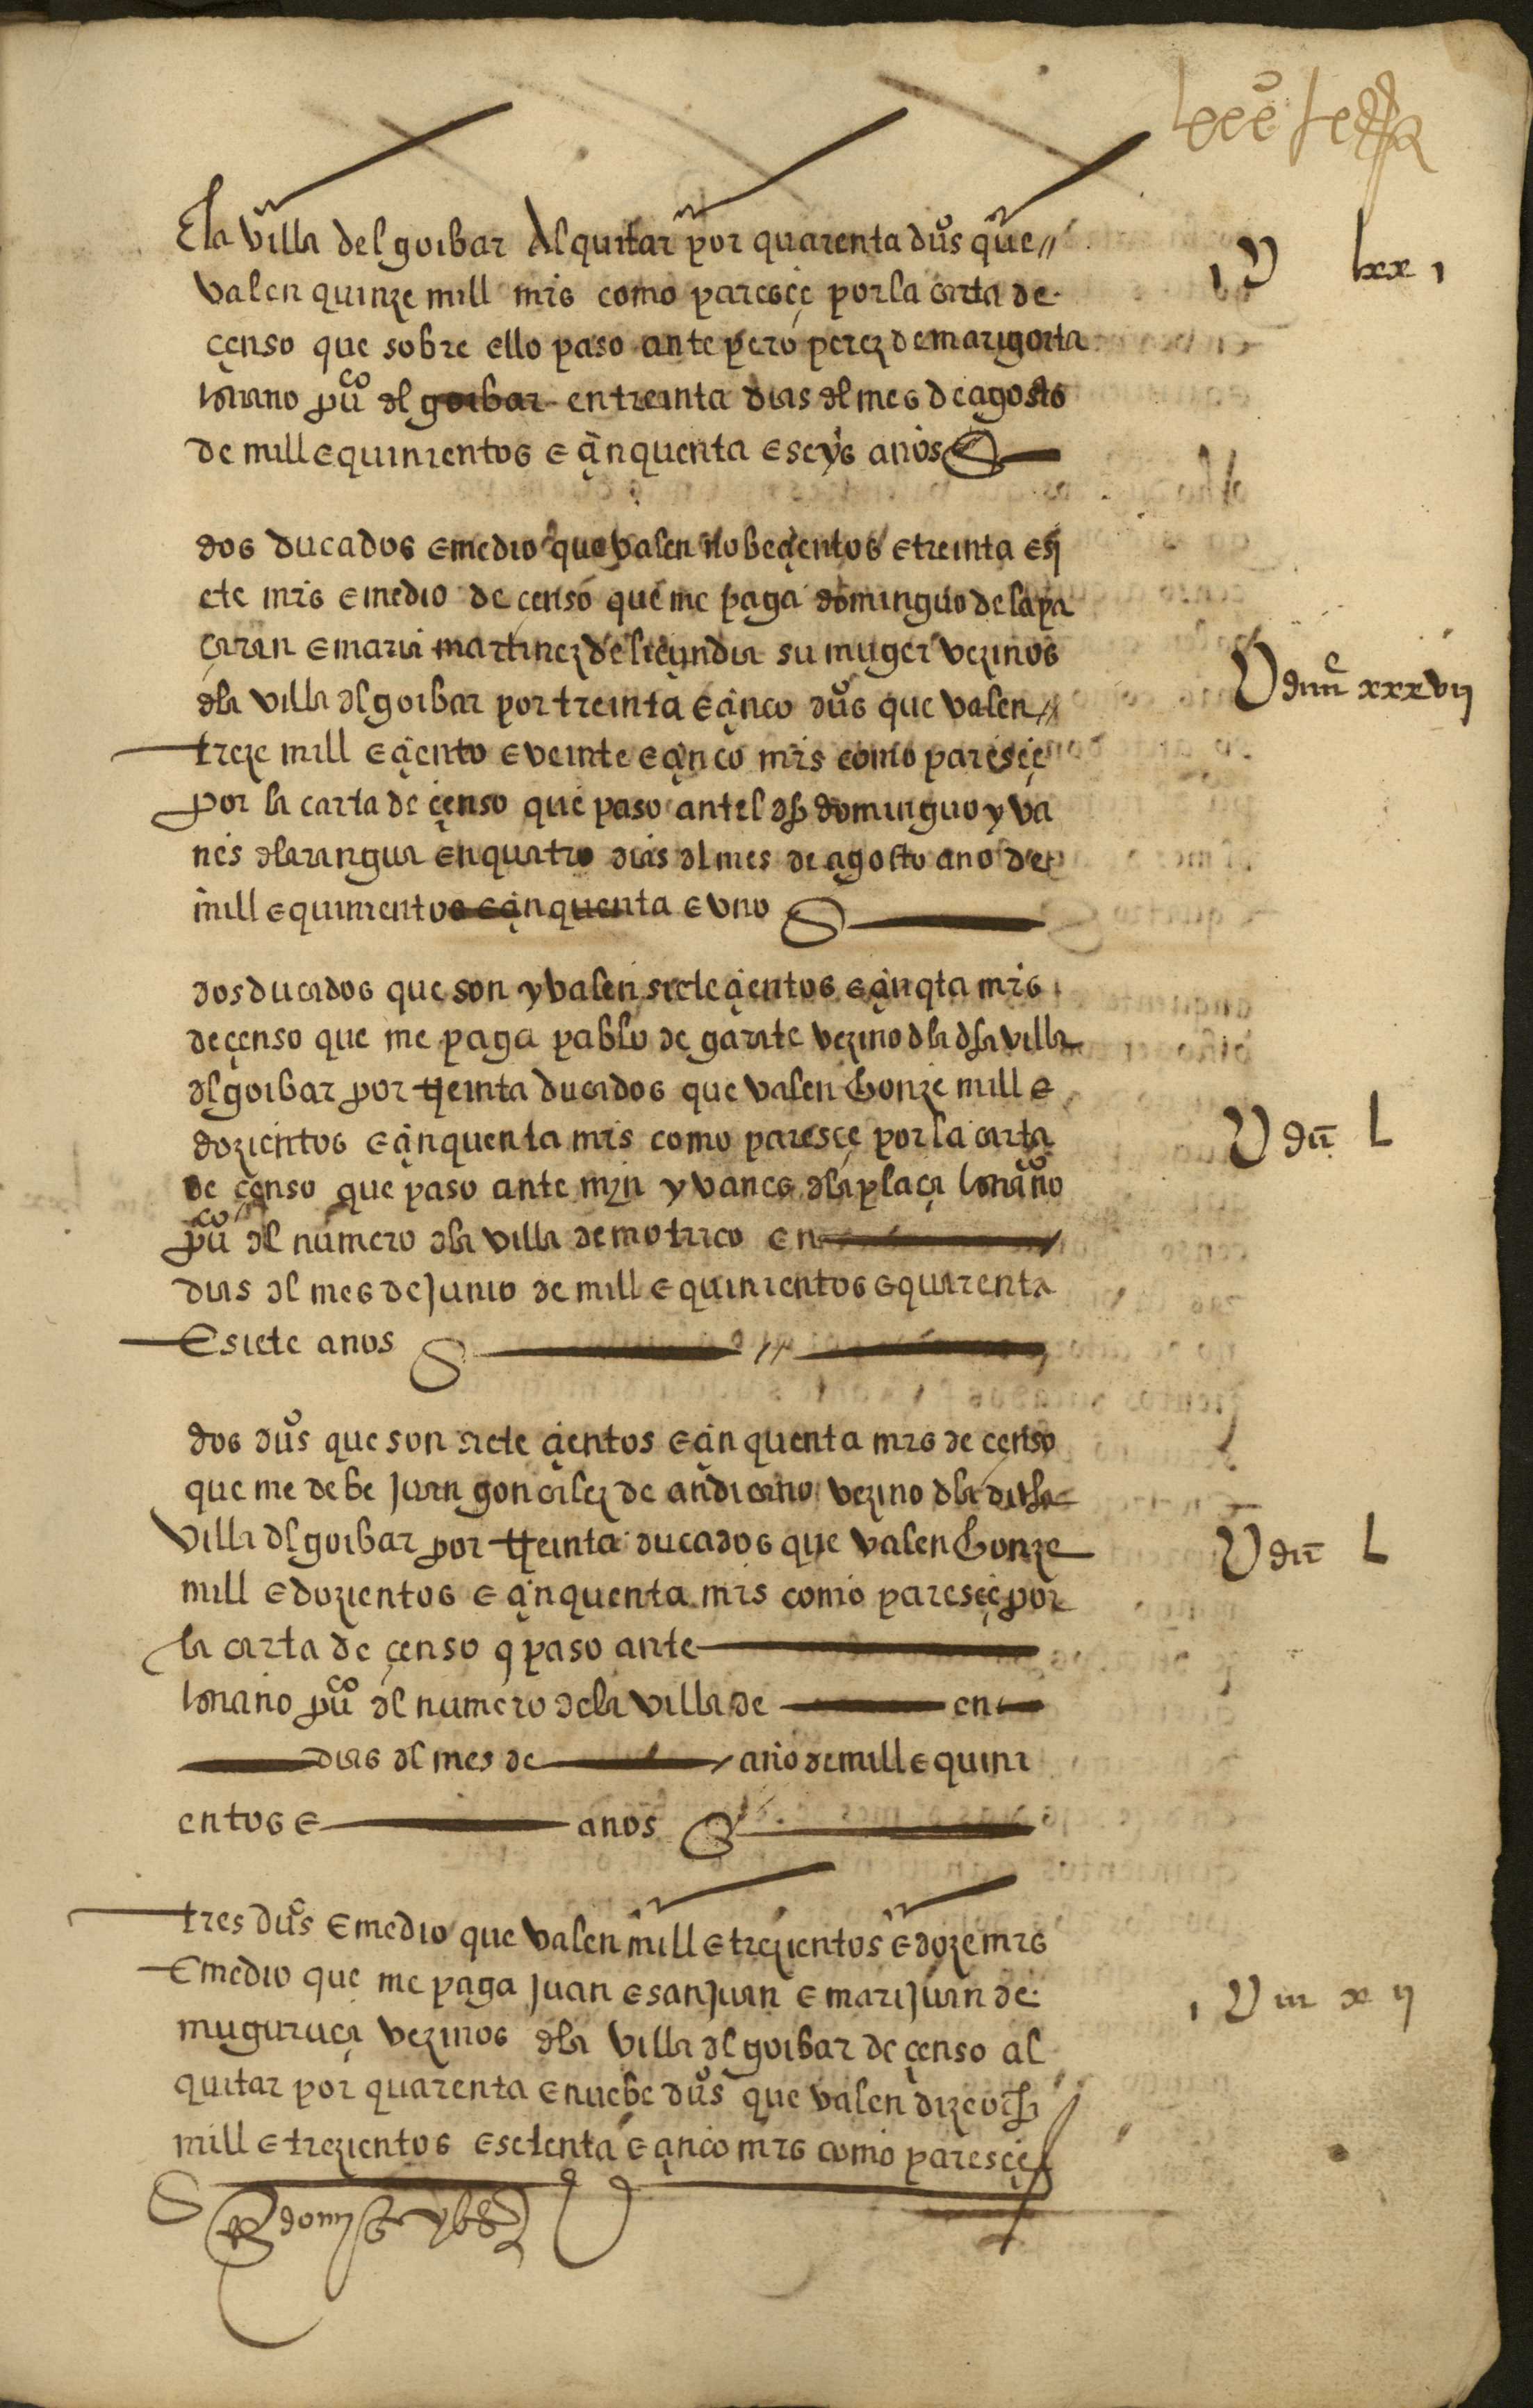 Ela villa del goibar Al quitar por quarenta duºs que//
valen quinze mill mrs como paresçe por la carta de
çenso que sobre ello paso ante pero perez de marigorta
puco del goibar en treinta dias del mes de agosto
de mill e quinientos e çinquenta e seys años
I U lxx I
dos ducados e medio que valen nobeçientos e treinta e si
ete mrs e medio de çenso que me paga domingo de
e maria martinez de su muger vezinos
dla villa del goibar por treinta e çinco duºs que valen//
treze mill e çiento e veinte e çinco mrs como paresçe
por la carta de çenso que paso antel dho dominguo yva
nes dlarangua en quatro dias del mes de agosto ano de
mill e quinientos e çinquenta e uno
U xxxvij
dos ducados que son y valen siete çientos e çinqta mrs
de çenso que me paga pablo de garate vezino dla dha villa
del goibar por treinta ducados que valen honze mill e
dozientos e çinquenta mrs como paresçe por la carta
de çenso que paso ante myn yvanes dla plaça
puco del numero dla villa de motrico en
dias del mes de junio de mill e quinientos e quarenta
E siete anos
U dcc L
dos duºs que son siete çientos e çinquenta mrs de çenso
que me debe juan gonçalez de andicano vezino dla dicha
villa del goibar por treinta ducados que valen honze
mill e dozientos e çinquenta mrs como paresçe por
la carta de çenso q paso ante
puco del numero dela villa de en
dias del mes de año de mill e quini
entos e anos
U dcc L
tres duºs e medio que valen mill e trezientos e doze mrs
E medio que me paga juan e sanjuan e marijuan de
muguruça vezinos dla villa del goibar de çenso al
quitar por quarenta e nuebe duºs que valen dizeocho
mill e trezientos e setenta e çinco mrs como paresçe
I U iii x ij